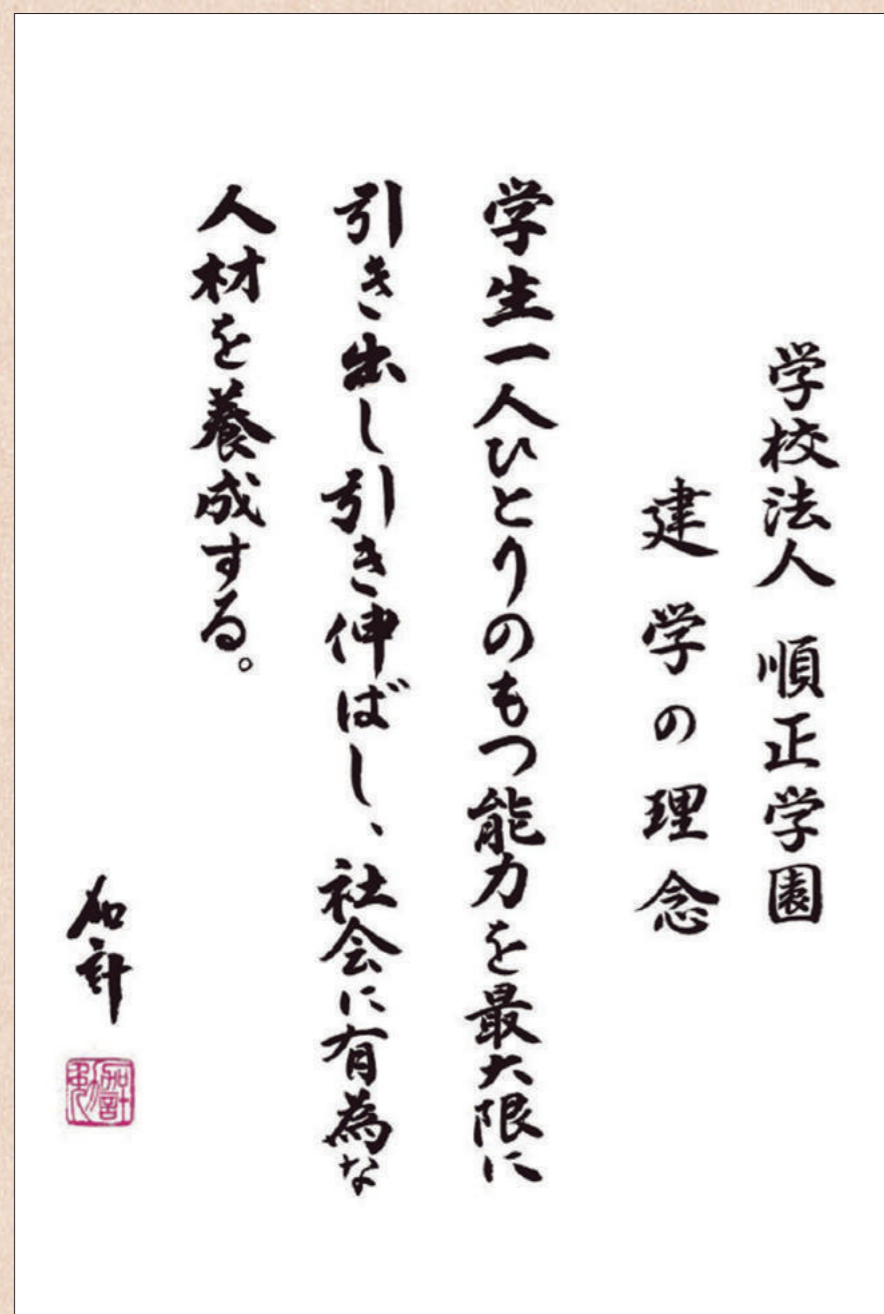 学校法人 順正学園
建学の理念
学生一人ひとりのもつ能力を最大限に
引き出し引き伸ばし、社会に有為な
人材を養成する。
加計